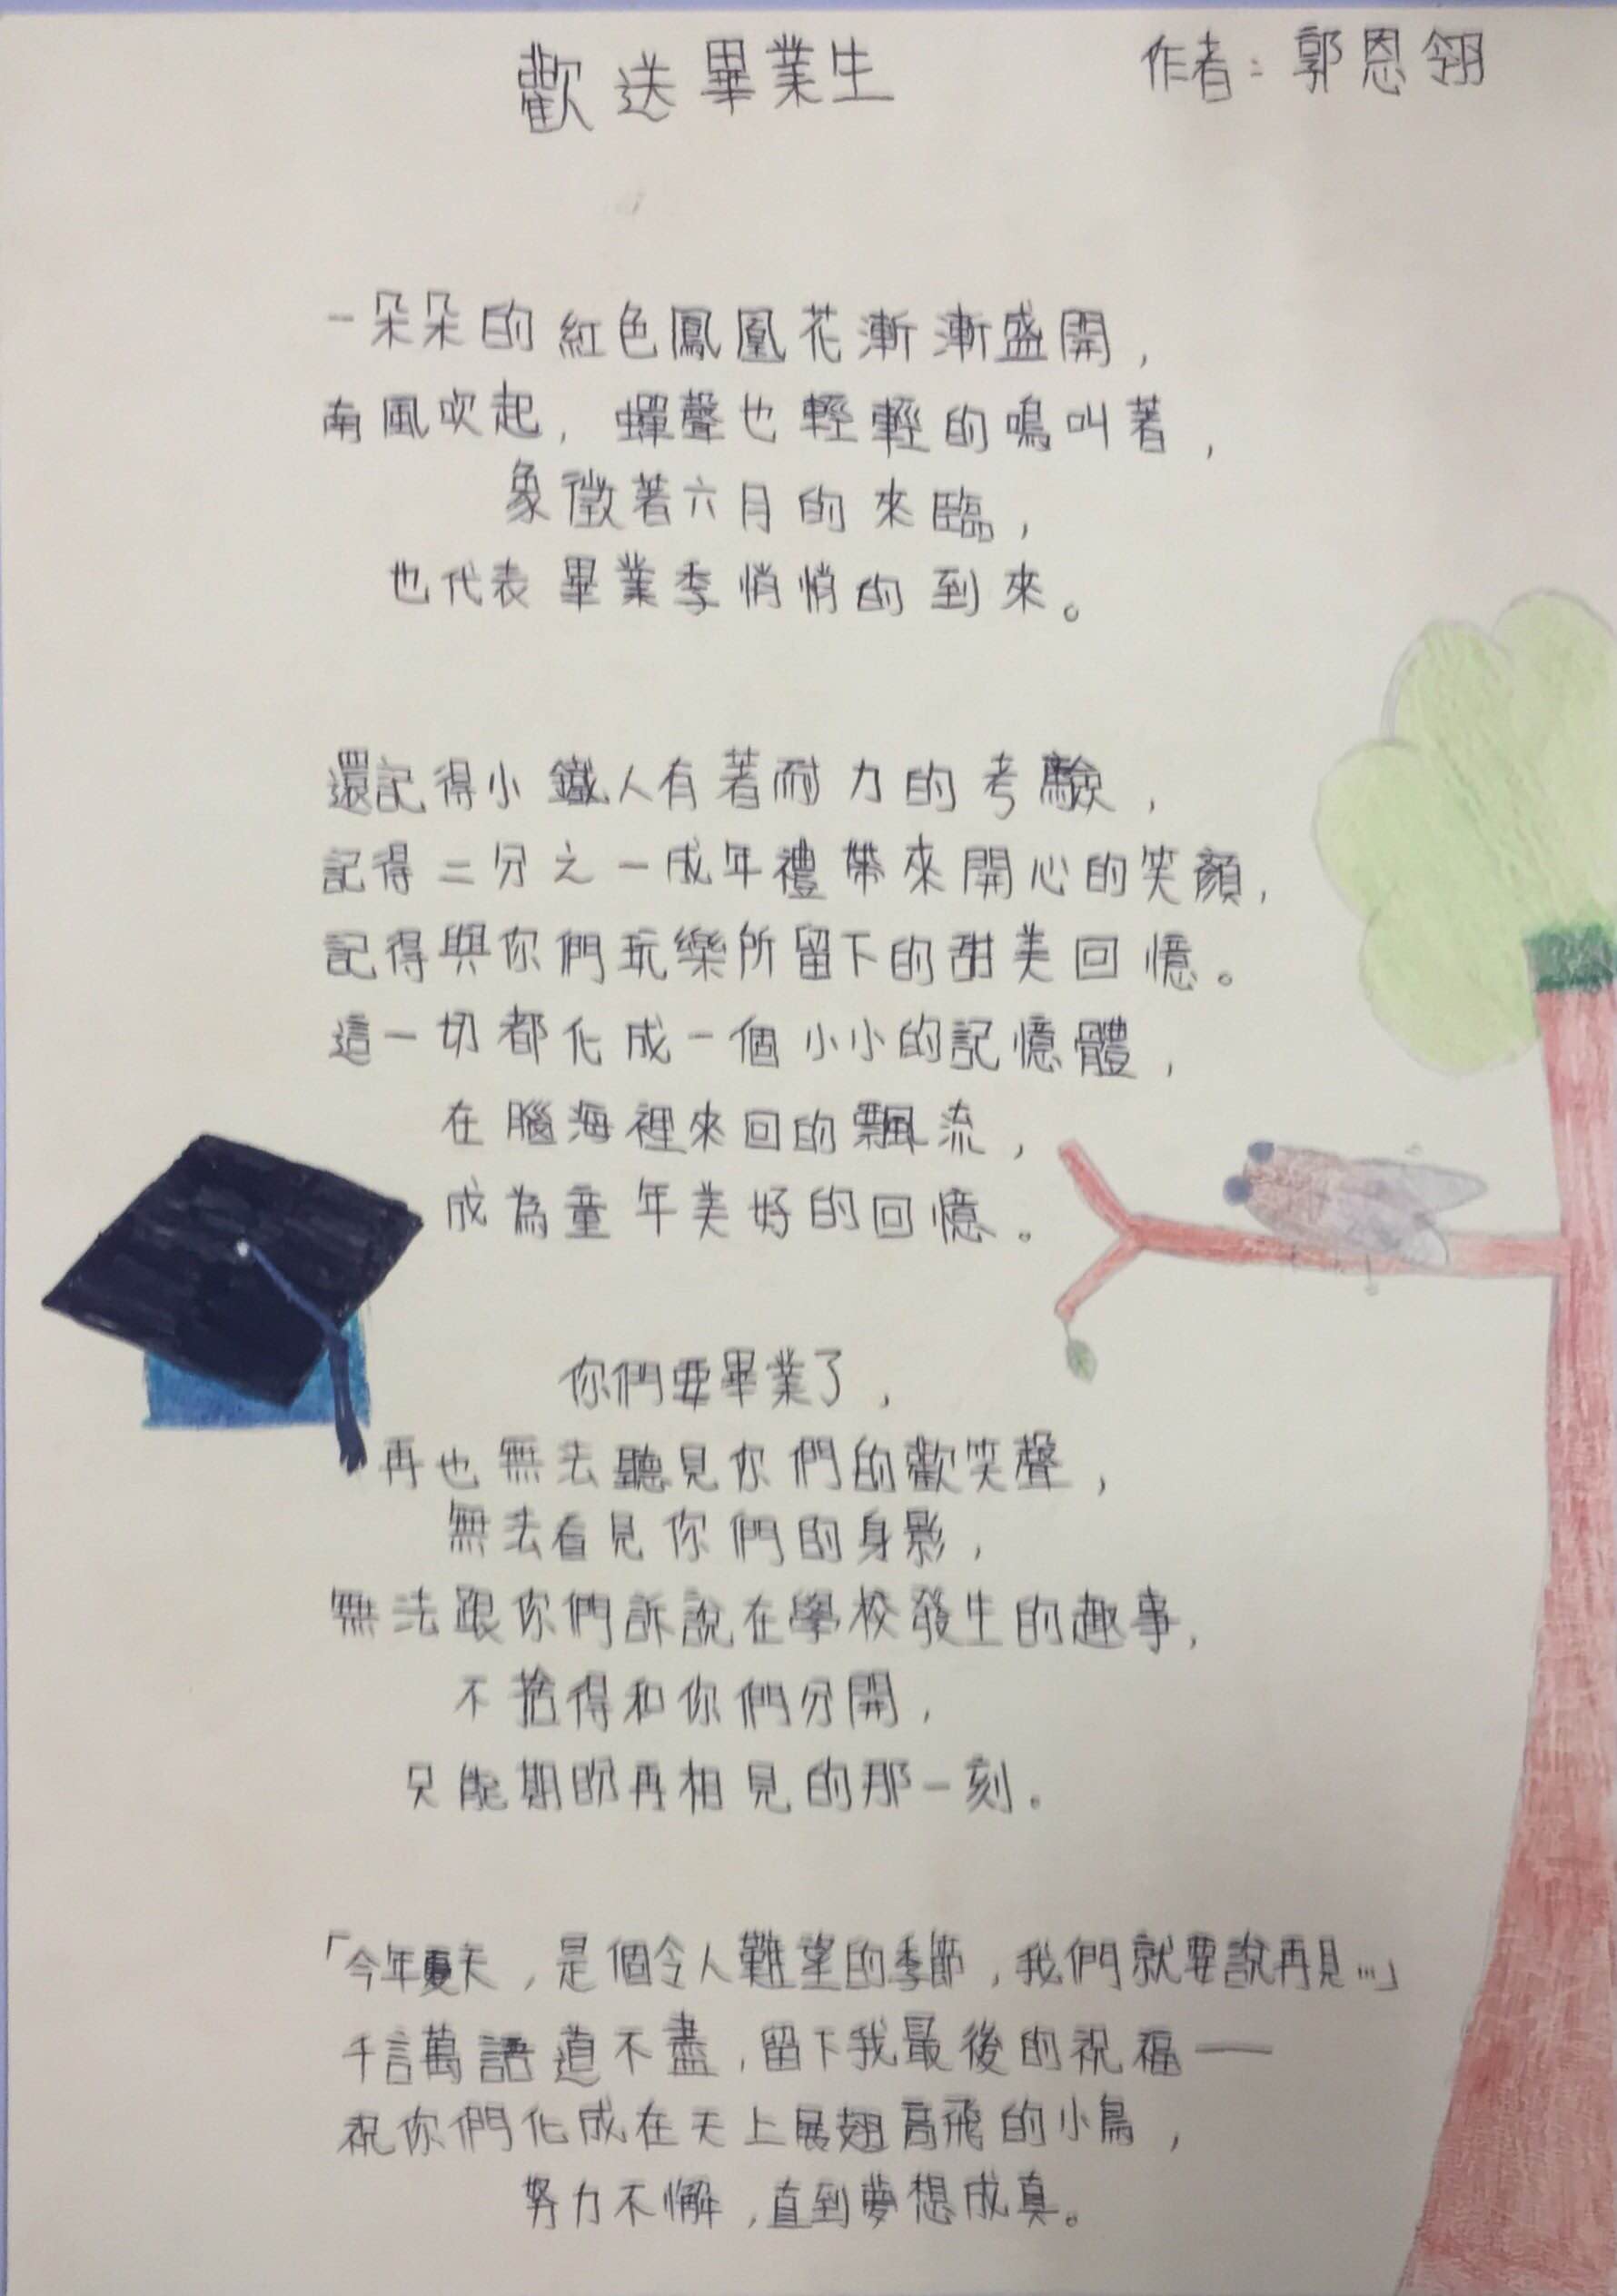 歡送畢業生
作者：郭恩翎
一朵朵的紅色鳳凰花漸漸盛開，
南風吹起，蟬聲也輕輕的鳴叫著，
象徵著六月的來臨，
也代表畢業季悄悄的到來。
還記得小鐵人有著耐力的考驗，
記得二分之一成年禮帶來開心的笑顏，
記得與你們玩樂所留下的甜美回憶。
這一切都化成一個小小的記憶體，
在腦海裡來回的飄流，
成為童年美好的回憶。
你們要畢業了，
再也無法聽見你們的歡笑聲，
無法看見你們的身影，
無法跟你們訴說在學校發生的趣事，
不捨得和你們分開，
只能期盼再相見的那一刻。
「今年夏天，是個令人難望的季節，我們就要說再見…」
千言萬語道不盡，留下我最後的祝福——
祝你們化成在天上展翅高飛的小鳥，
努力不懈，直到夢想成真。